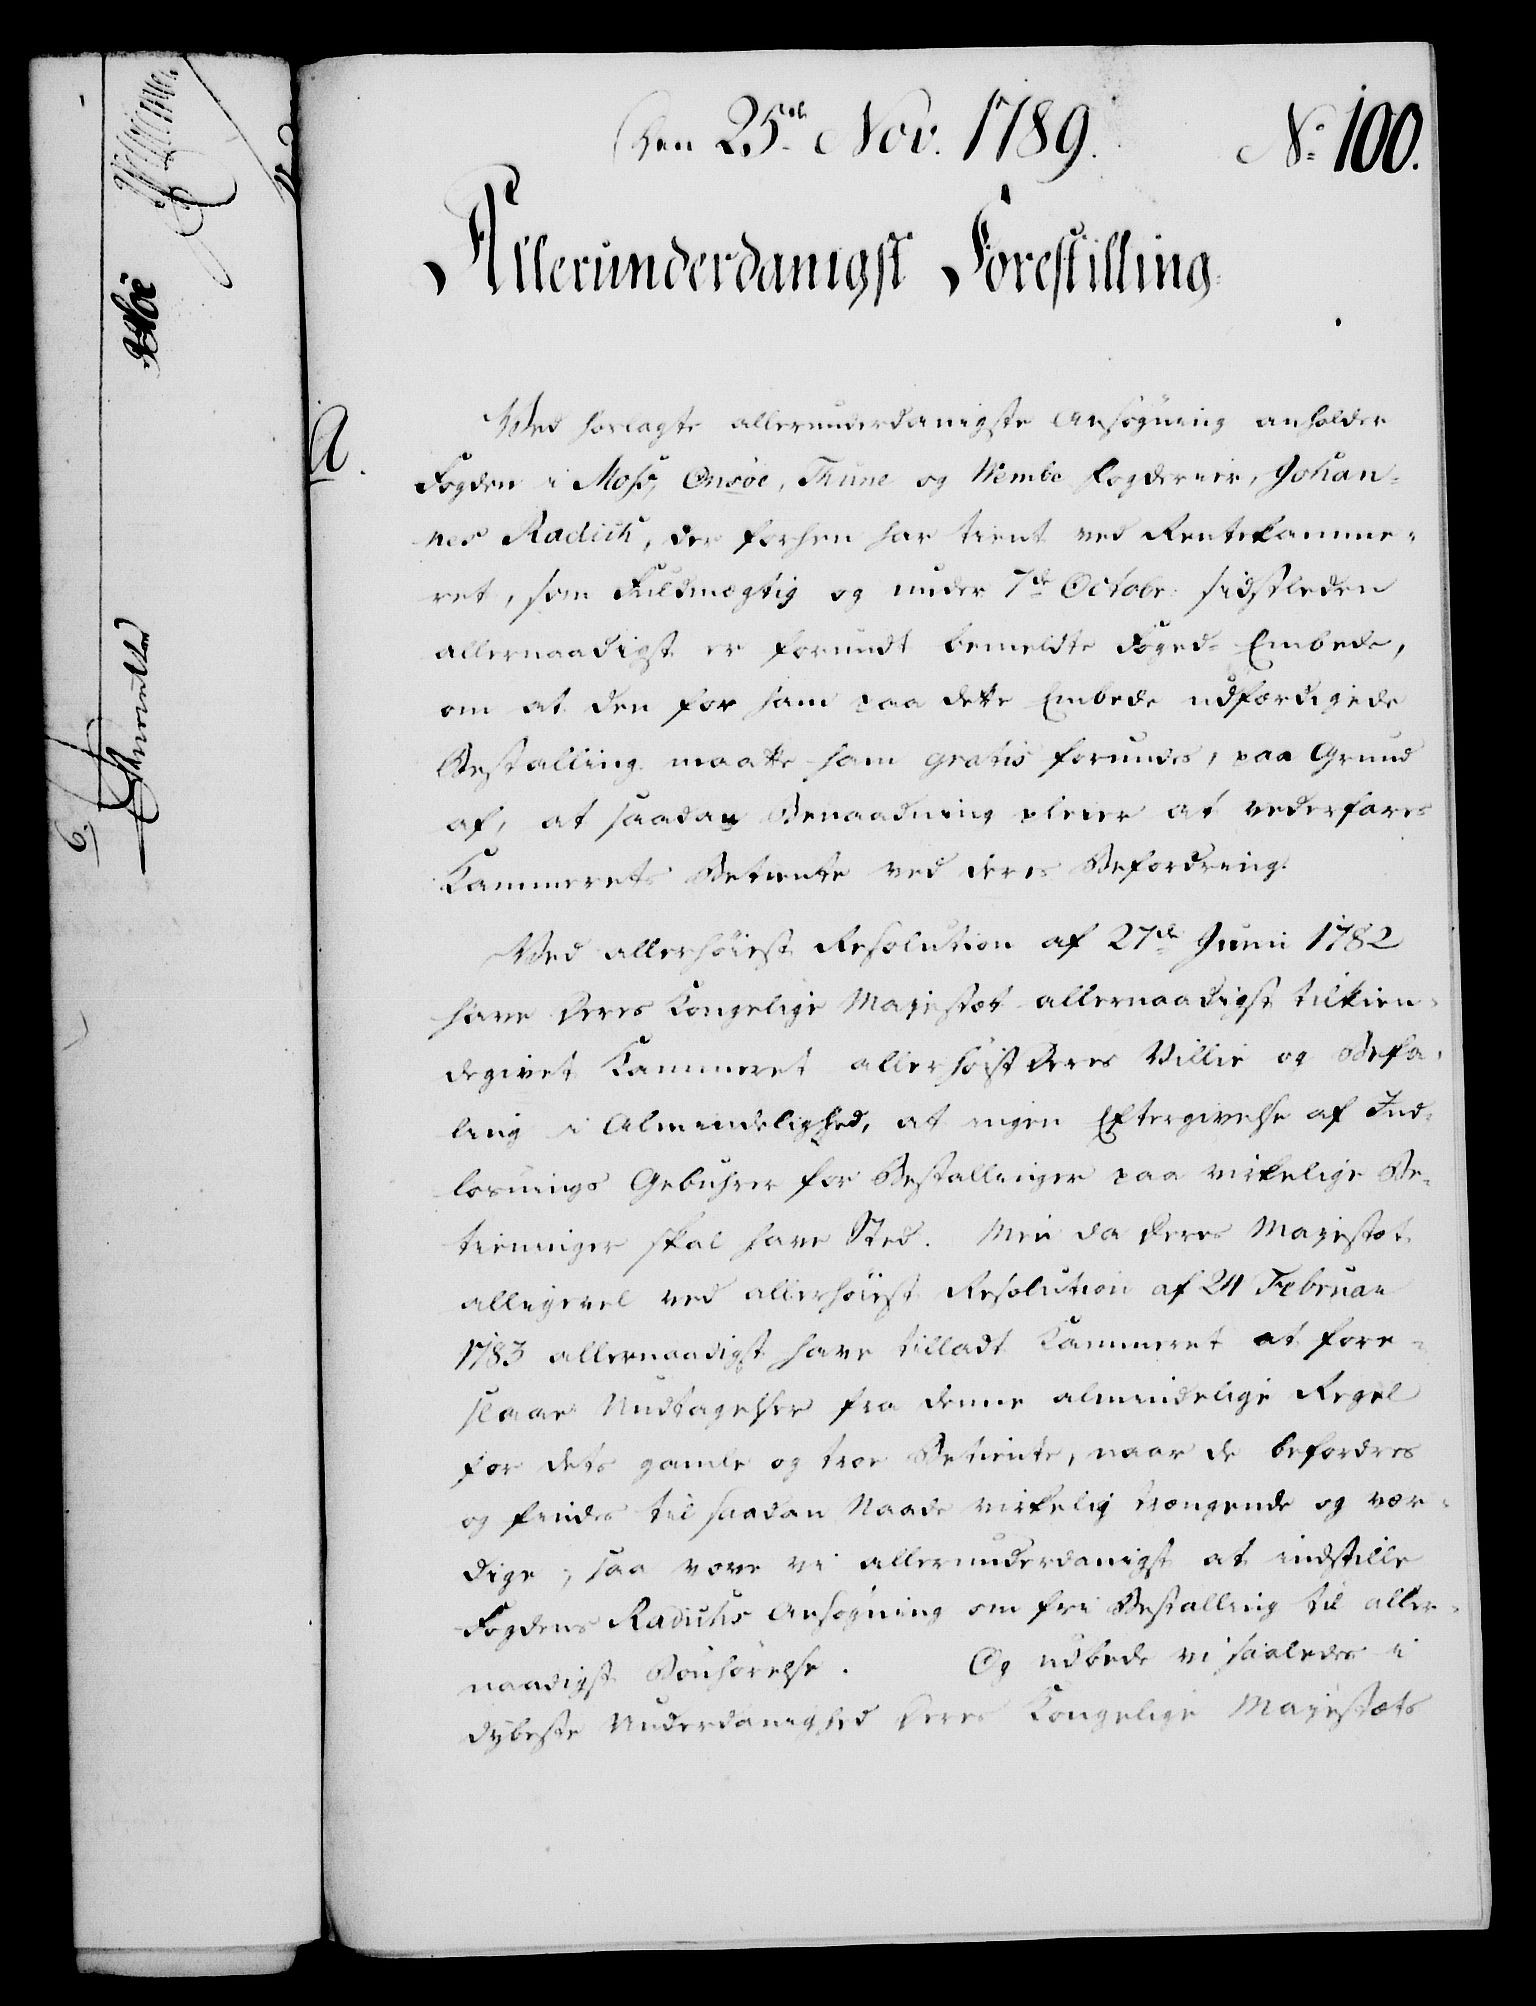 Den 25de Nov. 1789.
No 100.
Allerunderdanigst Forestilling.
A.
Ved hoslagte allerunderdanigste Ansøgning anholder
Fogden i Moss, Onsøe, Thune og Wembe Fogderier, Johan-
nes Radich, der forhen har tient ved Rentekamme-
ret, som Fuldmægtig og under 7de Octobr. sidstleden
allernaadigst er forundt bemeldte Foged-Embede,
om at den for ham paa dette Embede udfærdigede
Bestalling maatte ham gratis forundes, paa Grund
af, at saadan Benaadning pleier at vederfares
Kammerets Betiente ved deres Befordring.
Ved allerhöiest Resolution af 27de Junii 1782
have Deres Kongelige Majestæt allernaadigst tilkien-
degivet Kammeret allerhöist Deres Villie og Befa-
ling i Almindelighed, at ingen Eftergivelse af Ind-
løsnings Gebuhrer for Bestallinger paa virkelige Be-
tieninger skal have Sted. Men da Deres Majestæt
alligevel ved allerhöiest Resolution af 24 Februar
1783 allernaadigst have tilladt Kammeret at fore-
slaae Undtagelser fra denne almindelige Regel
for dets gamle og troe Betiente, naar de befordres
og findes til saadan Naade virkelig trængende og vær-
dige; saa vove vi allerunderdanigst at indstille
Fogdens Radichs Ansøgning om fri Bestalling til aller-
naadigst Bönhörelse. Og udbede vi saaledes i
dybeste Underdanighed Deres Kongelige Majestæts
6.